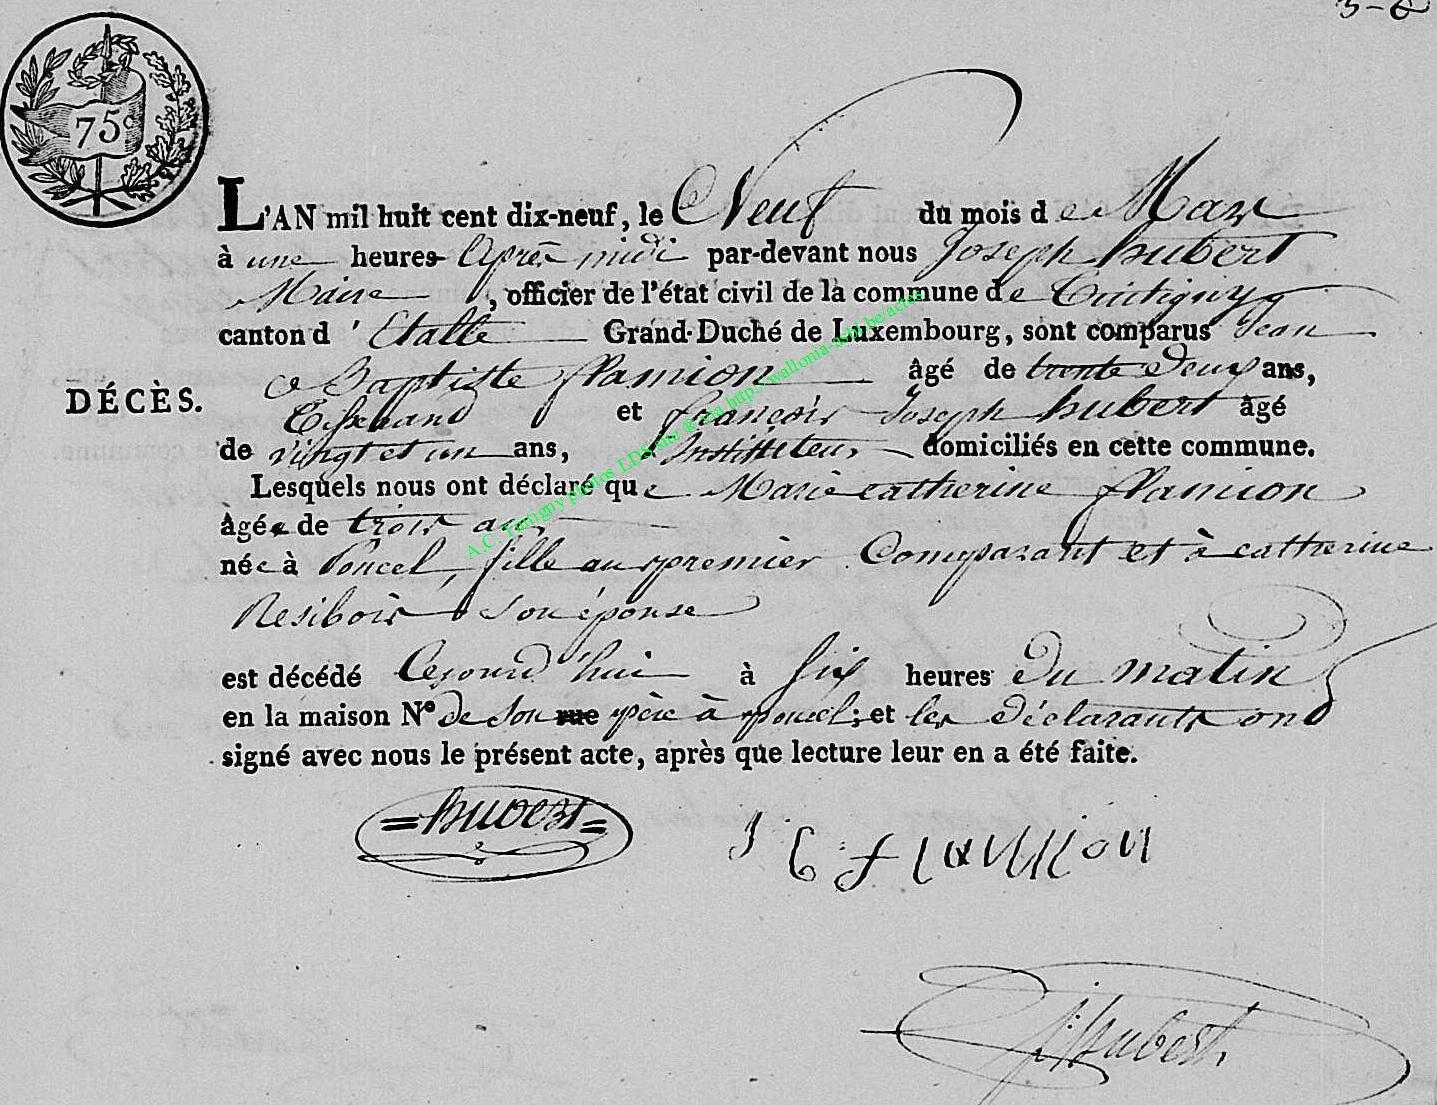 75c
L'AN mil huit cent dix-neuf, le Neuf du mois de Mars
à une heures L'après midi par-devant nous Joseph hubert
Maire, officier de l'état civil de la commune de Tintigny
canton d'Etalle Grand-Duché de Luxembourg, sont comparus Jean
Baptiste flamion âgé de trente deux ans,
Tisserand et françois Joseph hubert âgé
de vingt et un ans, Instituteur domiciliés en cette commune.
Lesquels nous ont déclaré que Marie catherine flamion
âgée de trois ans
DÉCÈS.
née à Poncel, fille au premier Comparant et à catherine
Resibois son épouse
est décédé Cejourd'hui à six heures du matin
en la maison N° de son rue père à poncel; et les déclarants ont
signé avec nous le présent acte, après que lecture leur en a été faite.
hubert
flamion
hubert
A.C. Tintigny photos LDS site @ via http://wallonia-asbl.be/actes